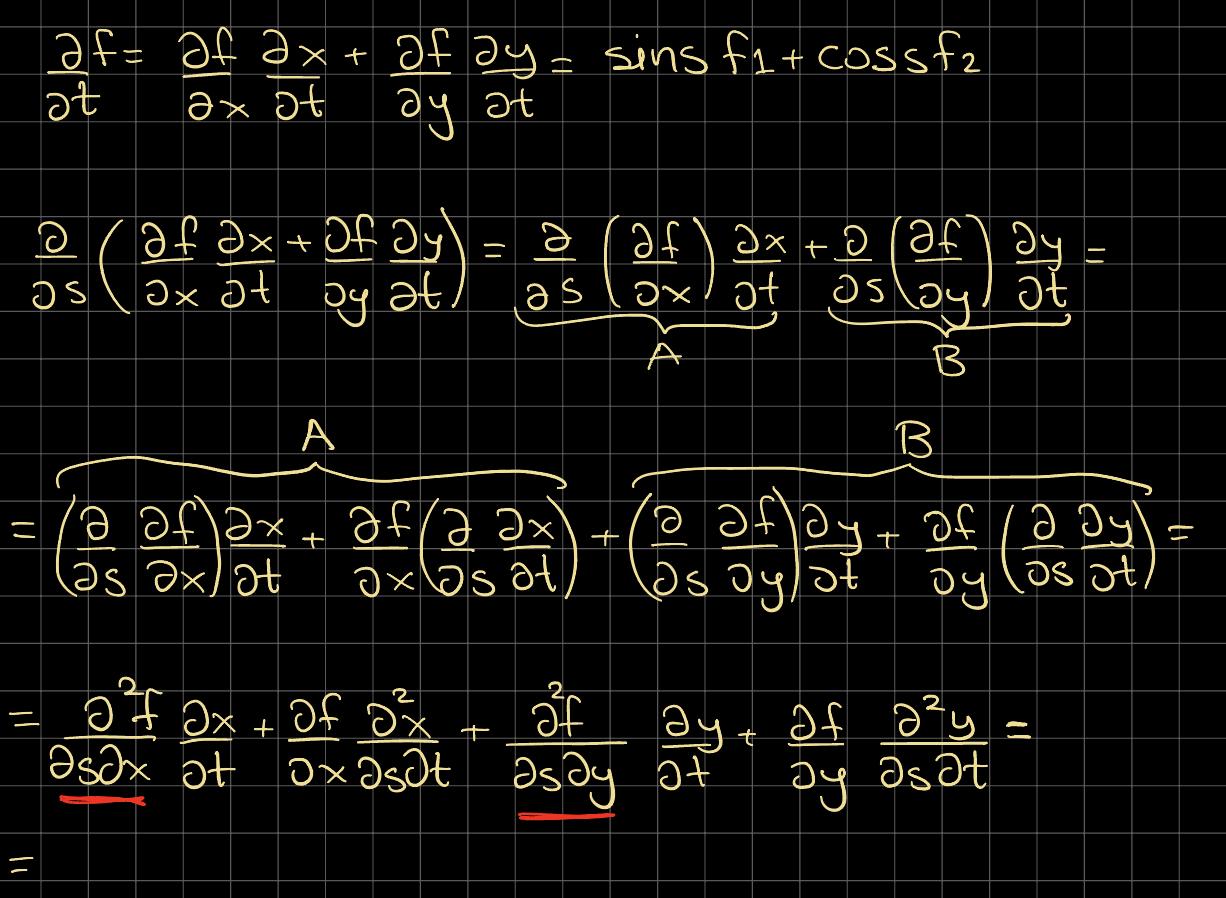 ∂f/∂t = ∂f/∂x ∂x/∂t + ∂f/∂y ∂y/∂t = sins f1 + coss f2
∂/∂s ( ∂f/∂x ∂x/∂t + ∂f/∂y ∂y/∂t ) = ∂/∂s (∂f/∂x) ∂x/∂t + ∂/∂s (∂f/∂y) ∂y/∂t =
A B
A B
= (∂/∂s ∂f/∂x) ∂x/∂t + ∂f/∂x (∂/∂s ∂x/∂t) + (∂/∂s ∂f/∂y) ∂y/∂t + ∂f/∂y (∂/∂s ∂y/∂t) =
= ∂²f/∂s∂x ∂x/∂t + ∂f/∂x ∂²x/∂s∂t + ∂²f/∂s∂y ∂y/∂t + ∂f/∂y ∂²y/∂s∂t =
=